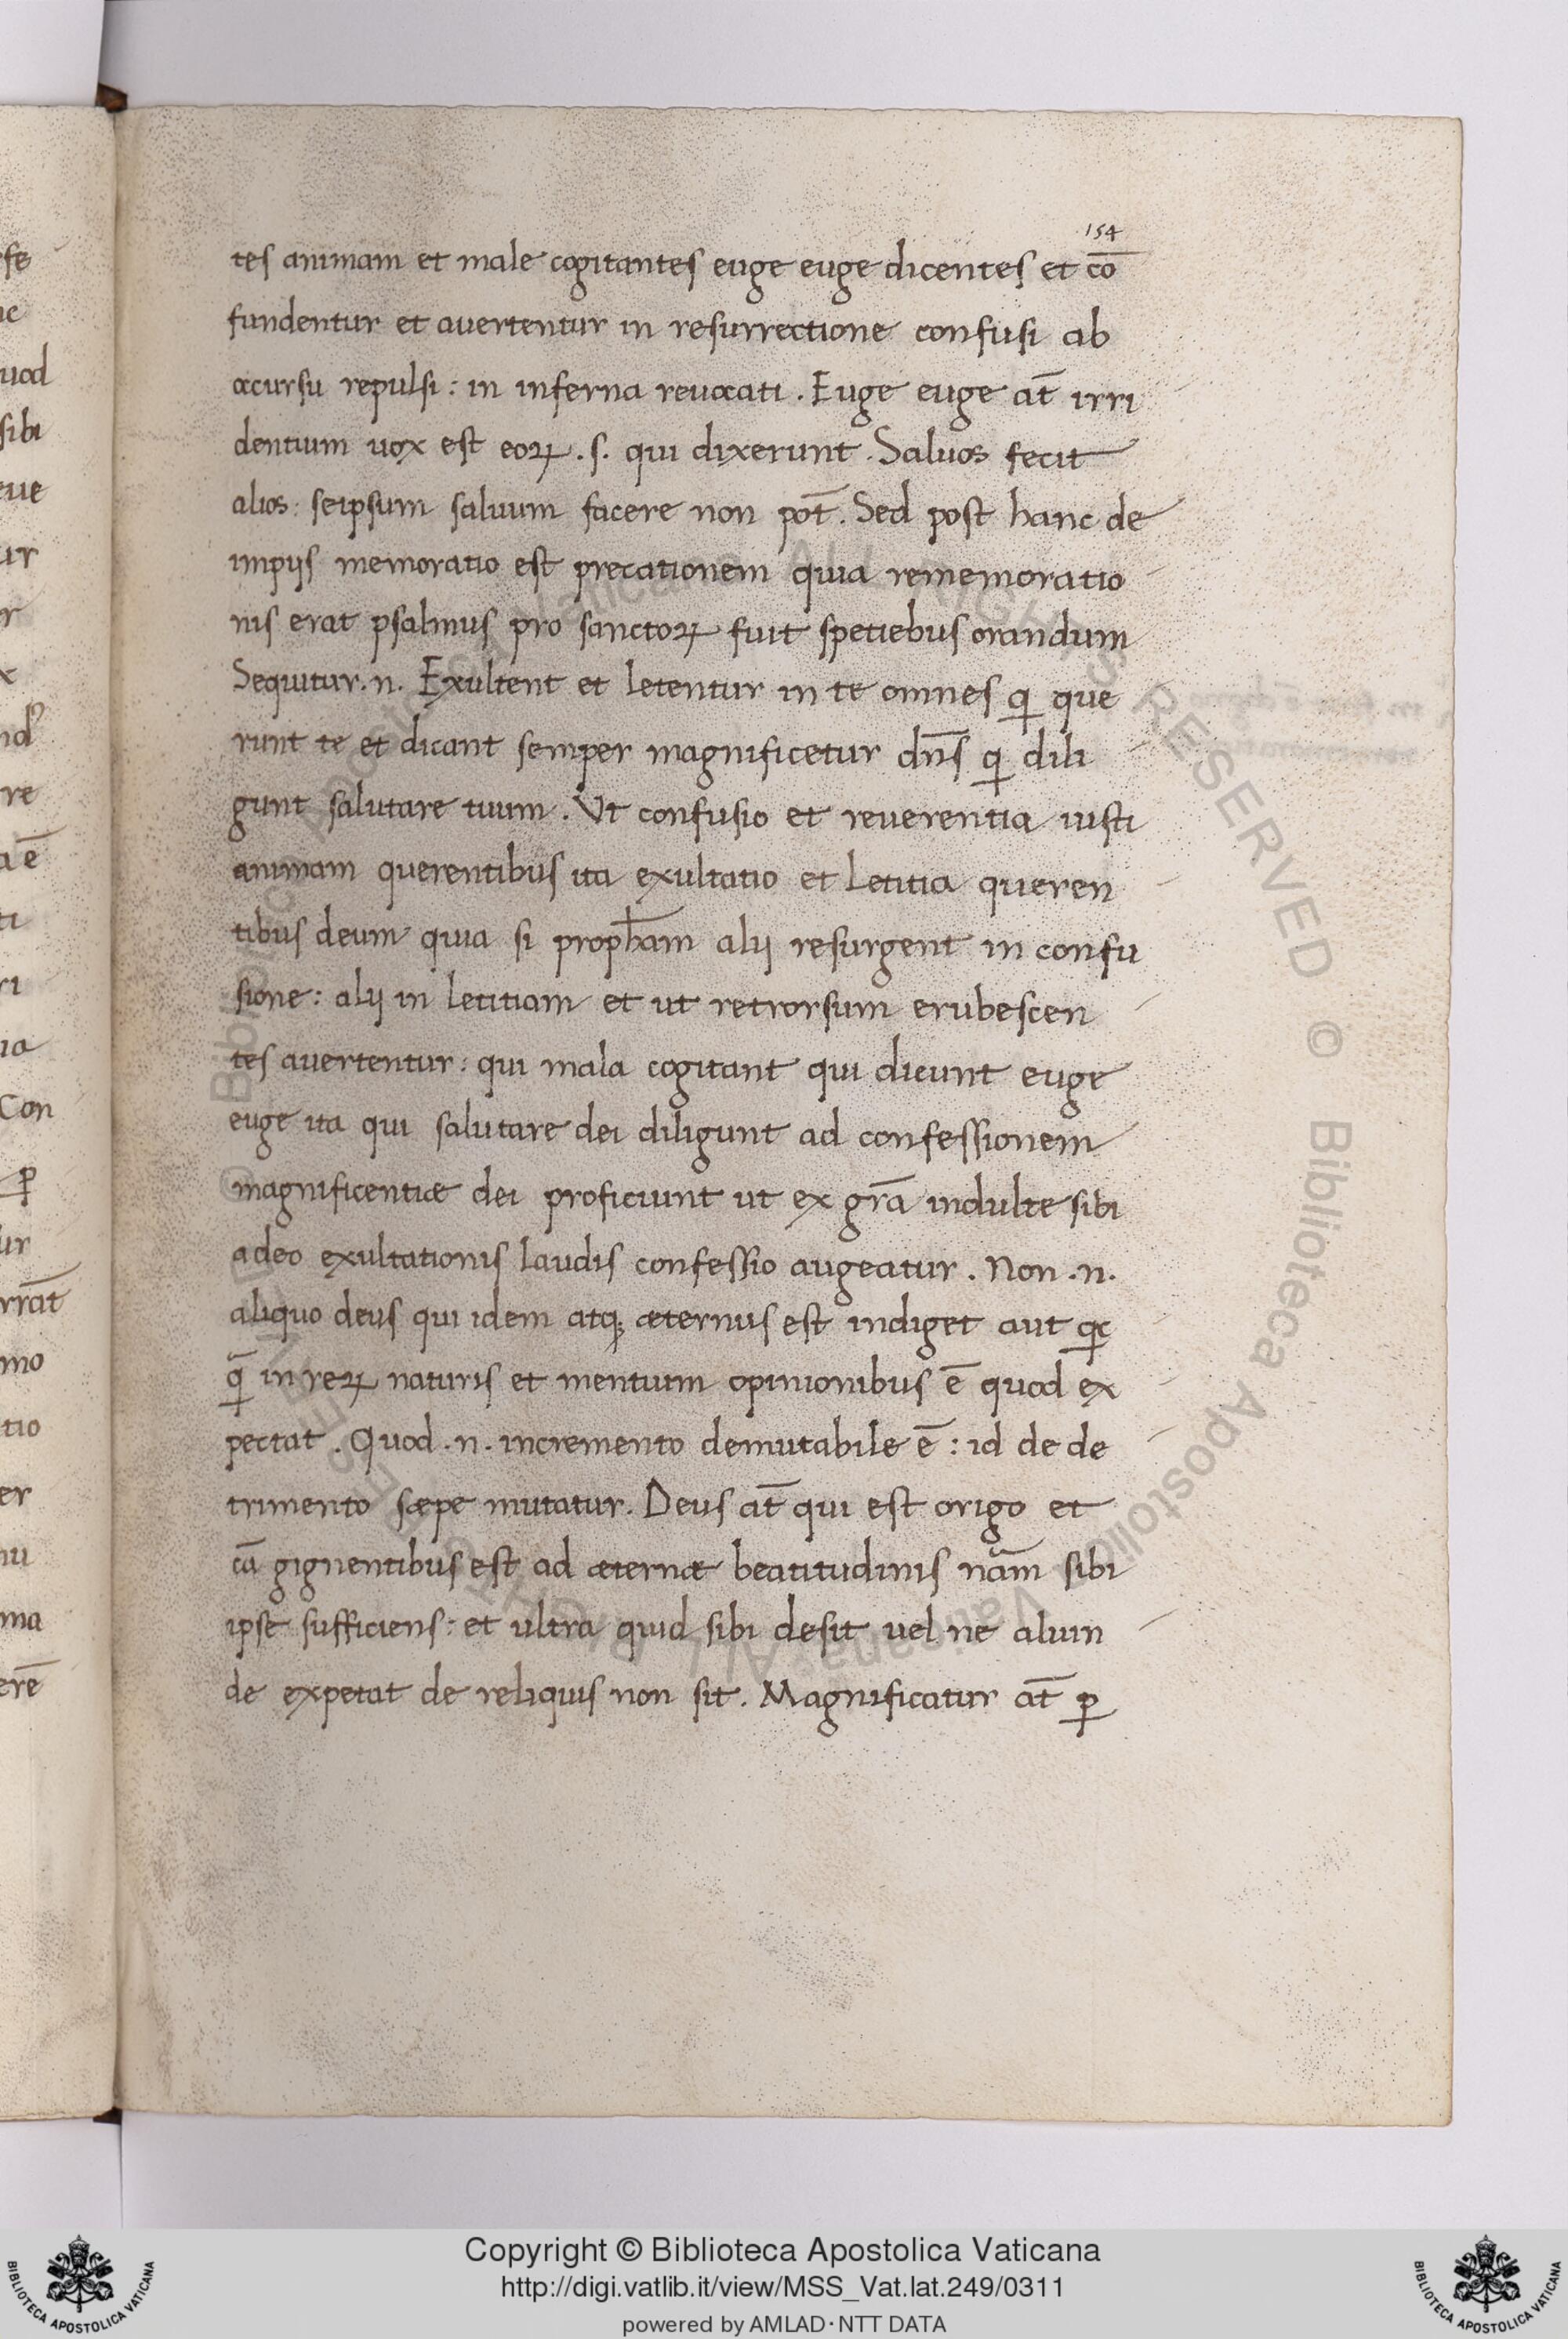 154
tes animam et male cogitantes euge euge dicentes et cō
fundentur et avertentur in resurrectione confusi ab
occursu repulsi: in inferna revocati. Euge euge at̄ irri
dentium vox est eoꝝ .s. qui dixerunt. Salvos fecit
alios: seipsum salvum facere non pot̄. Sed post hanc de
impijs memoratio est precationem quia rememoratio
nis erat psalmus pro sanctoꝝ fuit spetiebus orandum
Sequitur .n. Exultent et letentur in te omnes qi que
runt te et dicant semper magnificetur dn̄s qi dili
gunt salutare tuum. Ut confusio et reverentia iusti
animam querentibus ita exultatio et letitia queren
tibus deum quia si proph̄am alij resurgent in confu
sione: alij in letitiam et ut retrorsum erubescen
tes avertentur: qui mala cogitant qui dicunt euge
euge ita qui salutare dei diligunt ad confessionem
magnificentiæ dei proficiunt ut ex gr̄a indulte sibi
adeo exultationis laudis confessio augeatur. Non .n.
aliquo deus qui idem atq; æternus est indiget aut
in reꝝ naturis et mentium opinionibus ē quod ex
pectat. Quod .n. incremento demutabile ē: id de de
trimento sæpe mutatur. Deus at̄ qui est origo et
cā gignentibus est ad æternæ beatitudinis nām sibi
ipse sufficiens: et ultra quid sibi desit vel ne aliun
de expetat de reliquis non sit. Magnificatur at̄ ꝑ
fe
uod
sibi
eve
ur
r
x
re
a ē
ti
ri
ia
Con
ꝑ
ur
mo
tio
er
nu
ma
erē
© Biblioteca Apostolica Vaticana ALL RIGHTS RESERVED © Biblioteca Apostolica Vaticana ALL RIGHTS RESERVED
Copyright © Biblioteca Apostolica Vaticana
http://digi.vatlib.it/view/MSS_Vat.lat.249/0311
powered by AMLAD·NTT DATA
BIBLIOTECA APOSTOLICA VATICANA
BIBLIOTECA APOSTOLICA VATICANA